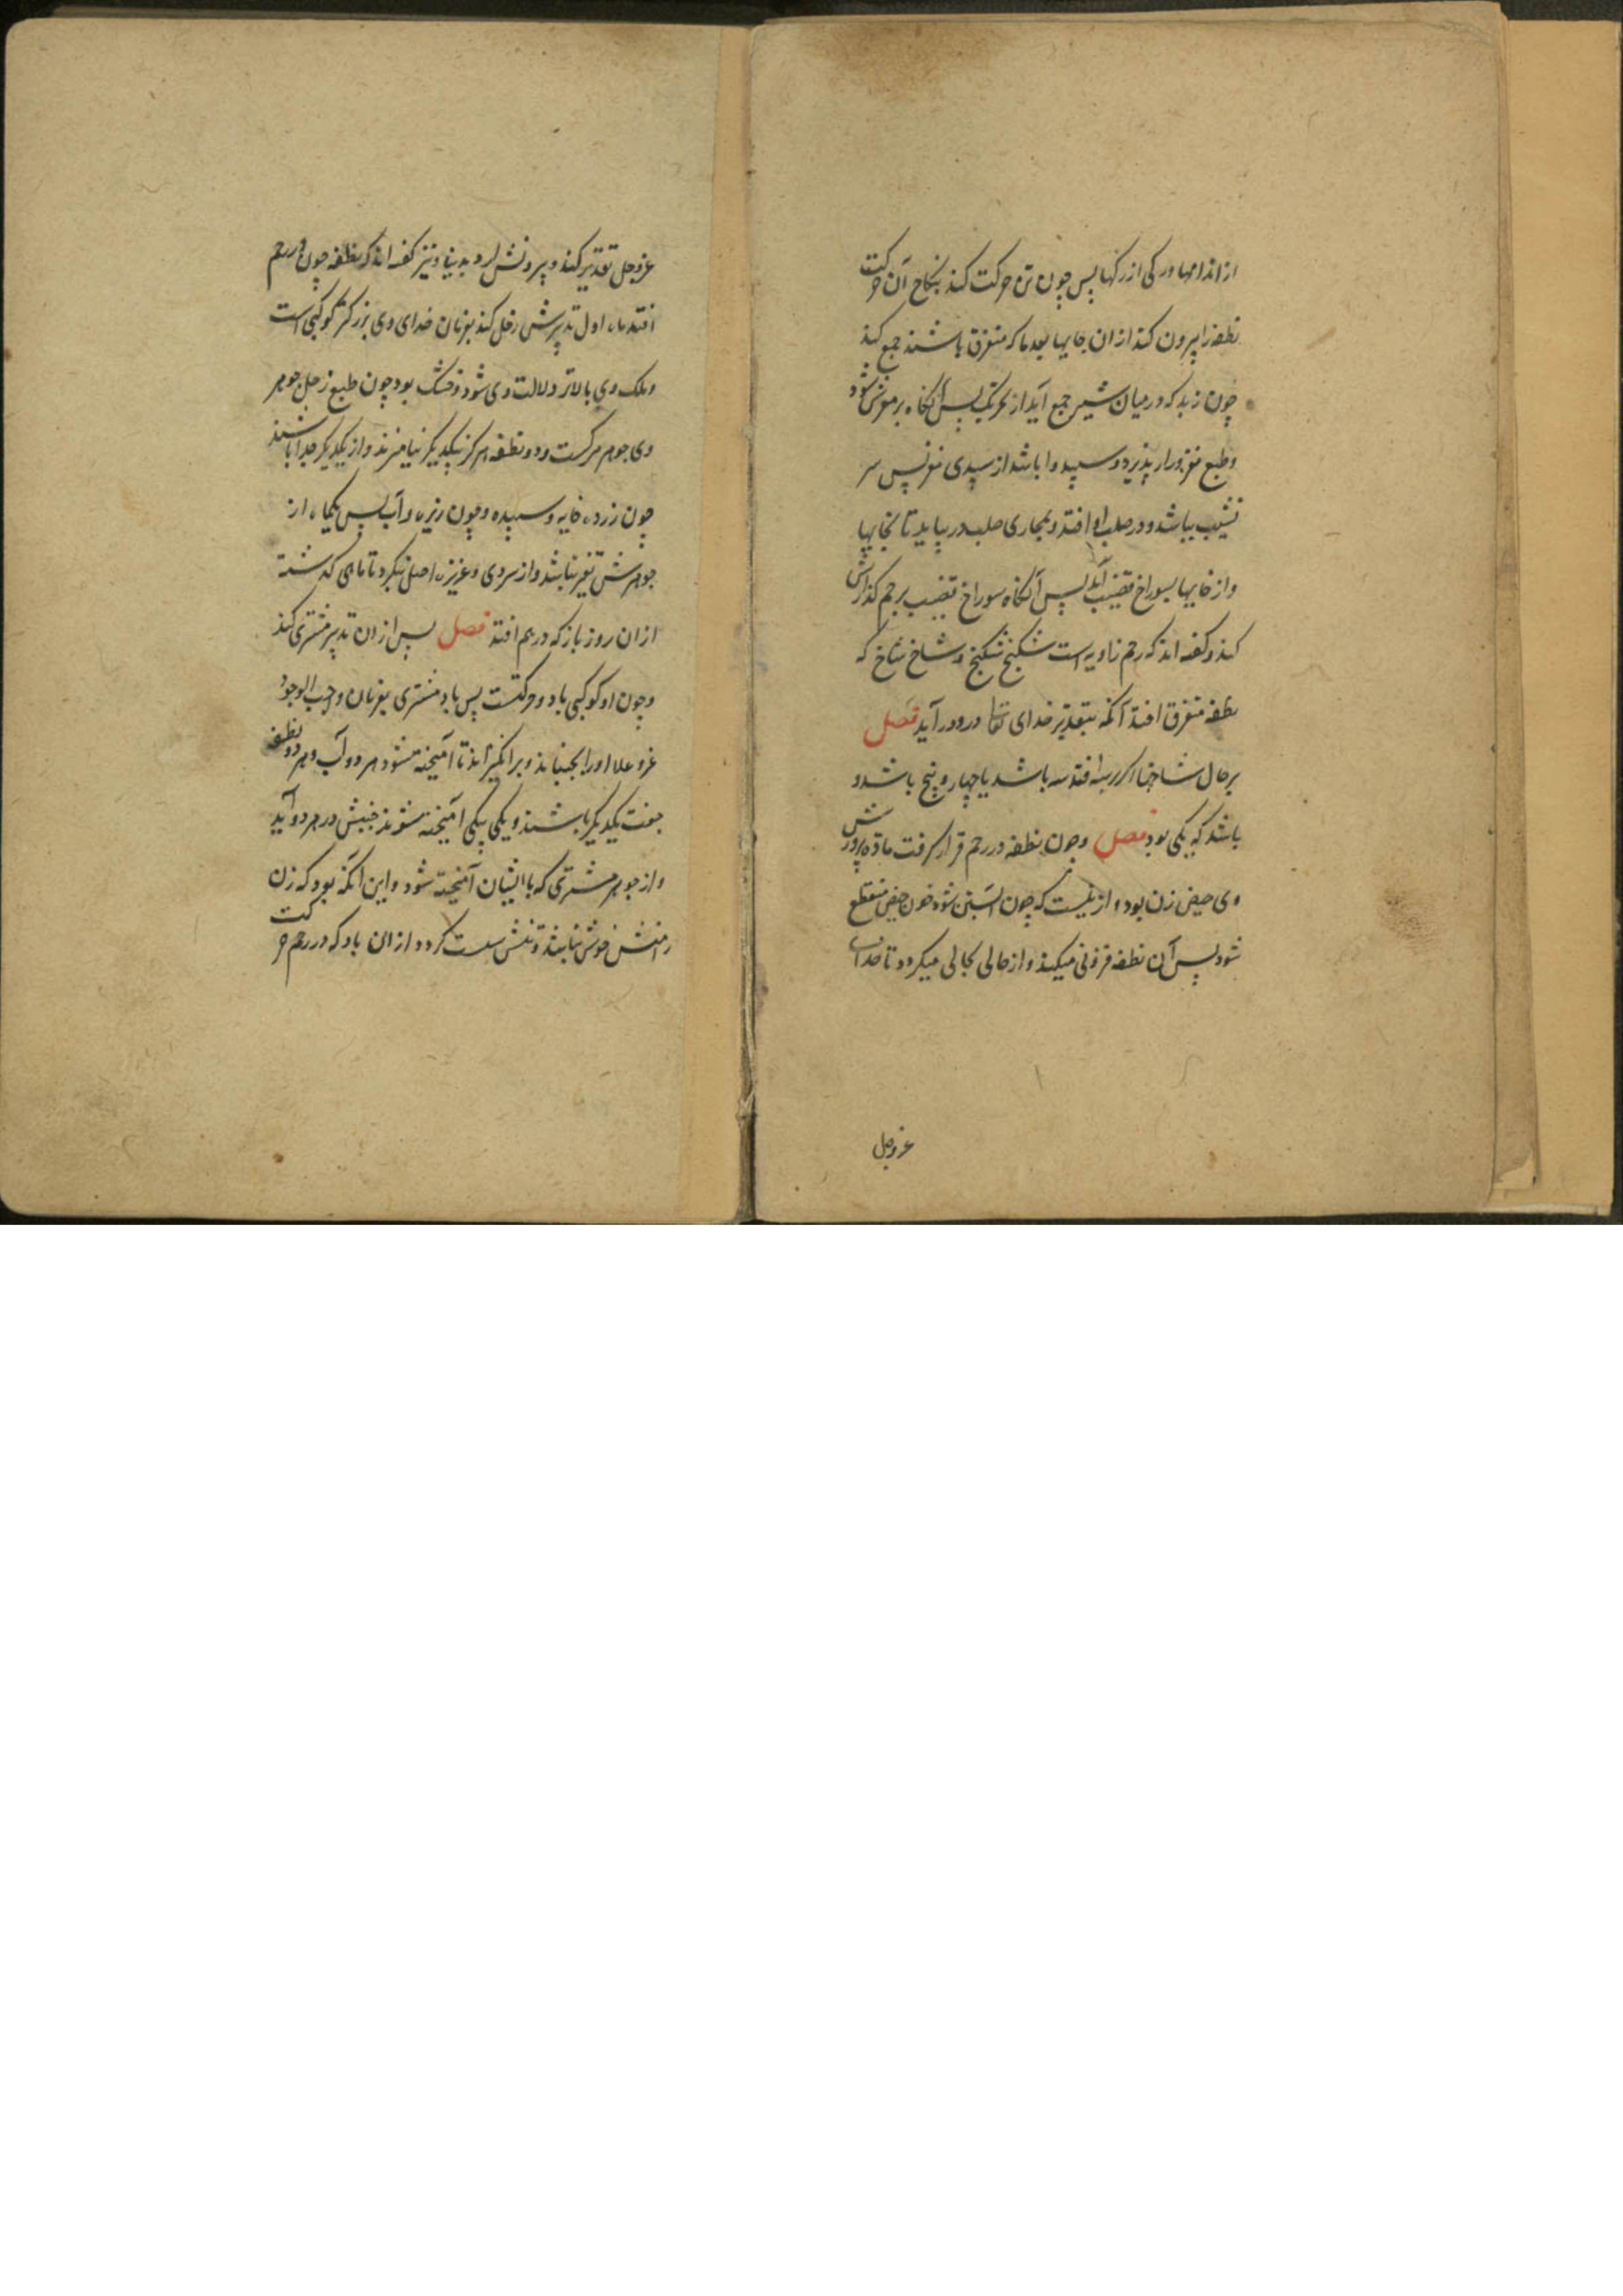 از اندامها ورکی از رکها پس چون تن حرکت کند بنکاح آن حرکت
نطفه را بیرون کند ازان جایها بعد ما که متفرق باشند جمع کند
چون زبد که در میان شیر جمع آید از تحریک پس آنکاه بر مغزش شود
و طبع مغز ورا پذیرد و سپید وا باشد از سپیدی مغز پس سر
نشیب بباشد و در صلب او افتد و بمجاری صلب در بیاید تا بخایها
و از خایها بسوراخ قضیب آید پس آنکاه سوراخ قضیب برحم کذارش
کند و کفته اند که رحم زاویه است شکنج شکنج و شاخ شاخ که
نطفه متفرق افتد آنکه بتقدیر خدای تعالی درو درآید فصل
بر حال شاخها اکر بسه افتد سه باشد یا چهار و پنج باشد و
باشد که یکی بود فصل و چون نطفه در رحم قرار کرفت ماده پرورش
وی حیض زن بود و ازینست که چون آبستن شود خون حیض منقطع
شود پس آن نطفه فزونی میکند و از حالی بحالی میکردد تا خدای
عزوجل
عزوجل تقدیر کند و بیرونش آرد بدنیا و نیز کفته اند که نطفه چون در رحم
افتد ماه اول تدبیرش زحل کند بفرمان خدای و وی بزرکتر کوکبی است
و فلک وی بالاتر و دلالت وی شود و خشک بود چون طبع زحل جوهر
وی جوهر مرکست و دو نطفه هرکز بیکدیکر نیامیزند و از یکدیکر جدا باشند
چون زرده خایه و سپیده و چون زیره و آب پس یکماه از
جوهرش تغیر نباشد و از سردی و غریزه اصلی نکردد تا ماهی کذشته
ازان روز باز که در رحم افتد فصل پس ازان تدبیر مشتری کند
و چون او کوکبی باد و حرکتست پس باد مشتری بفرمان واجب الوجود
عز و علا اورا بجنباند و برانکیزاند تا آمیخته شود هر دو آب و هر دو نطفه
جفت یکدیکر باشند و یکی بیکی آمیخته شوند جنبش در هر دو آید
و از جوهر مشتری که با ایشان آمیخته شود و این آنکه بود که زن
رامنش خوش نباشد و تنش سست کردد ازان باد که در رحم حرکت